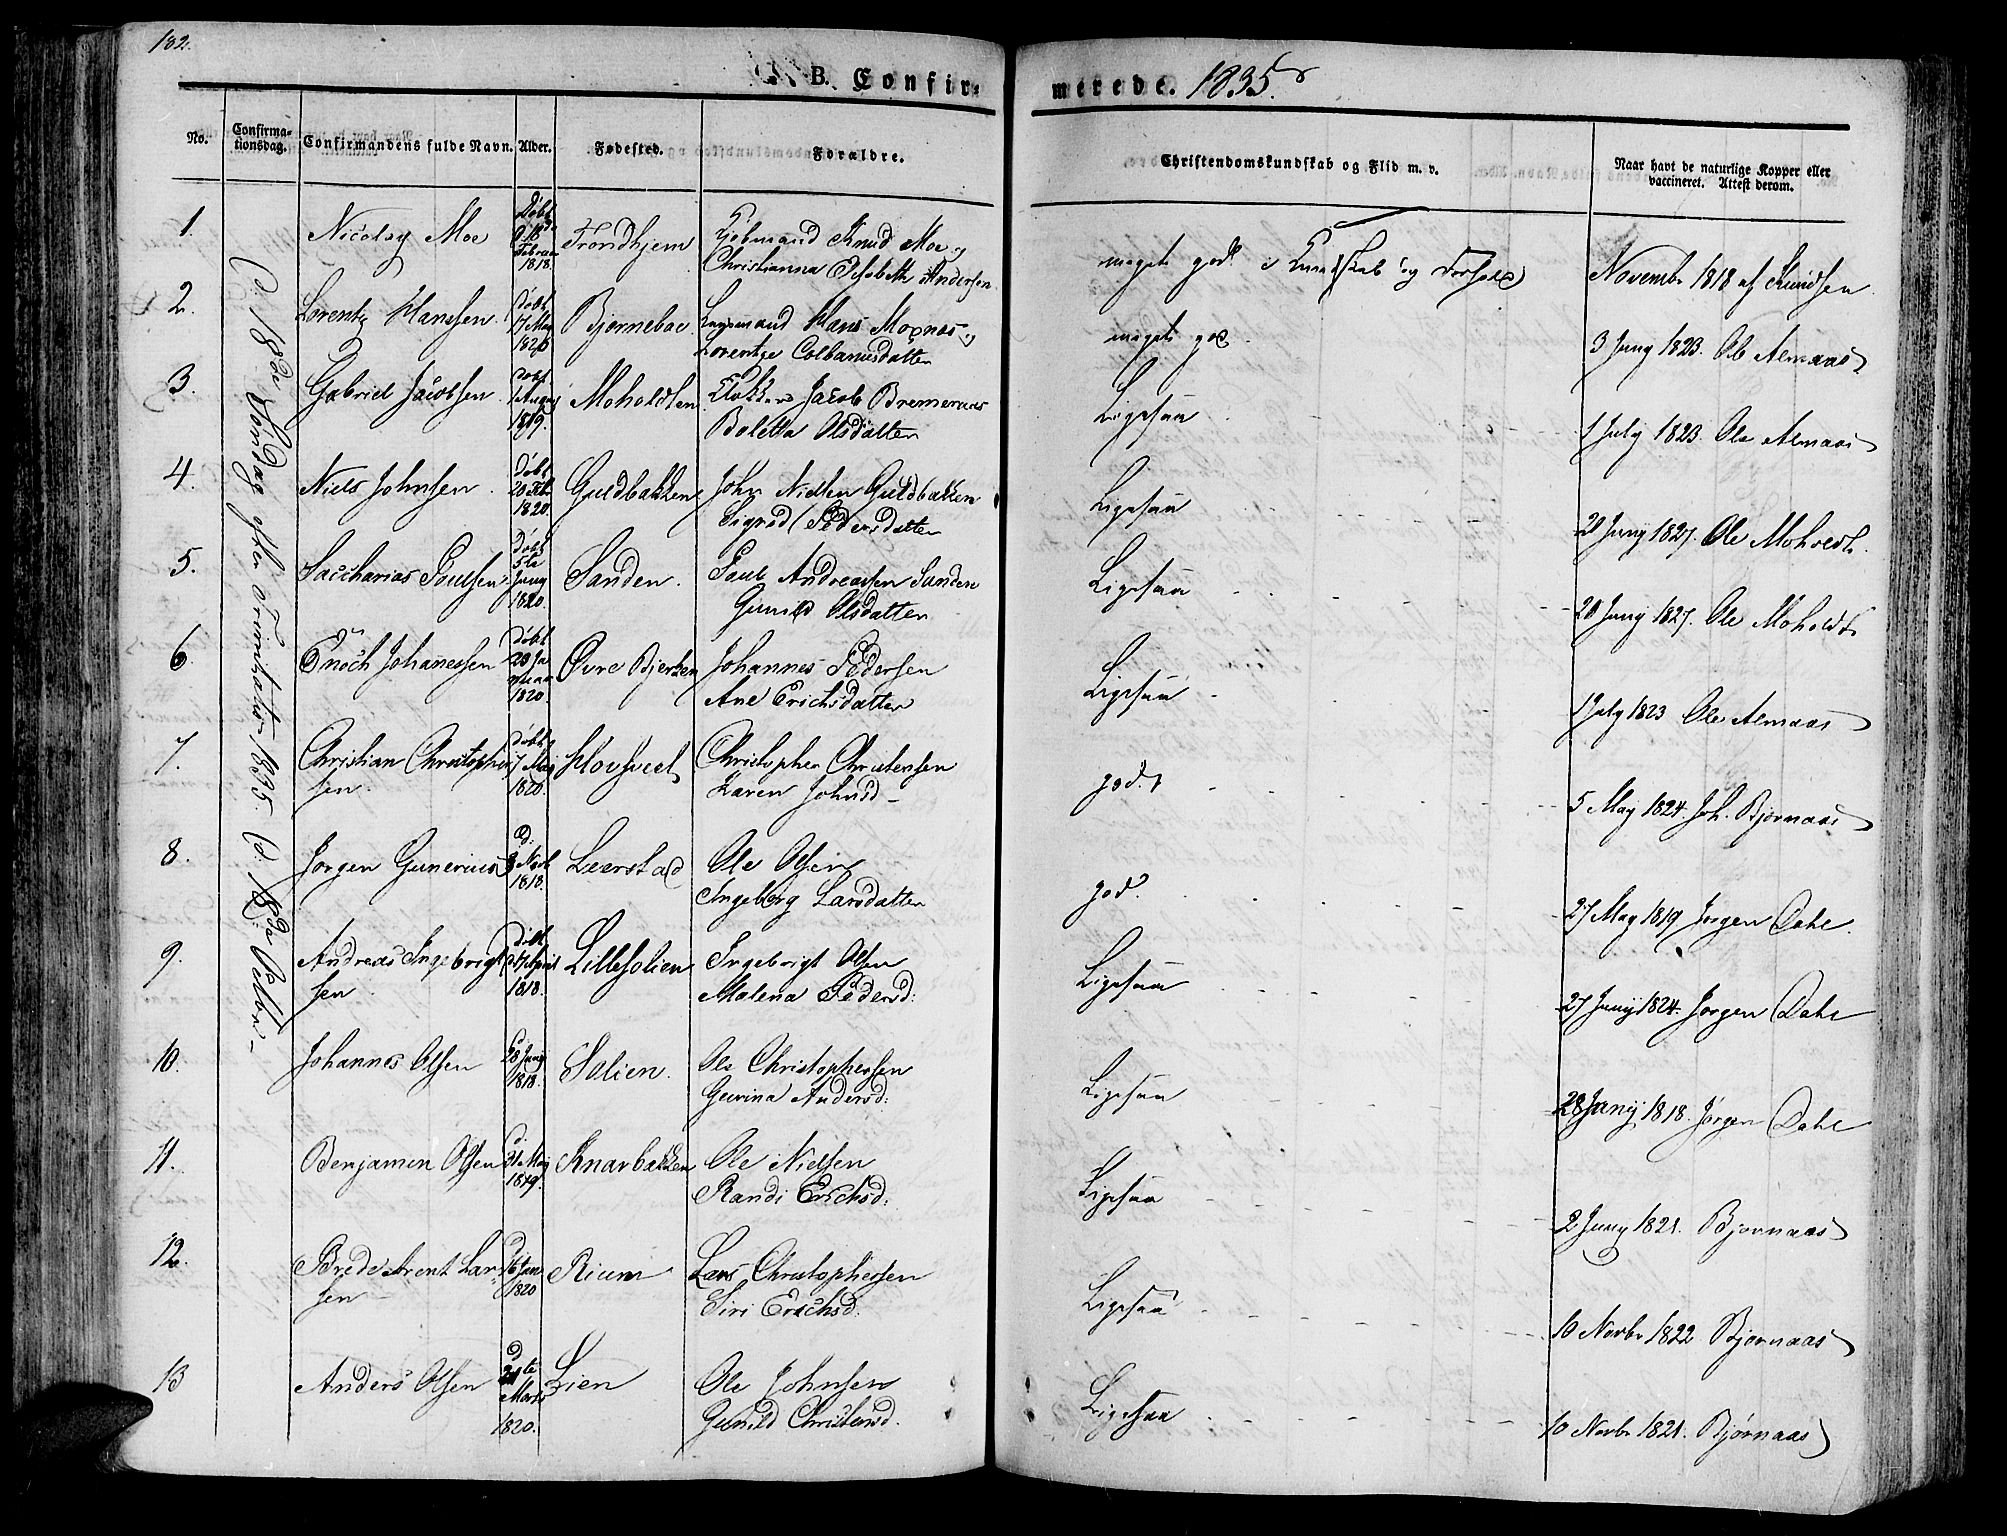 182.
B. Confir-
merede. 1835.
No.
Confirma-
tionsdag.
Confirmandens fulde Navn.
Alder.
Fødested.
Forældre.
Christendomskundskab og Flid m. v.
Naar havt de naturlige Kopper eller
vaccineret. Attest derom.
d. 18de Søndag efter Trinitatis 1835. d. 18de Octbr.
1. Nicolay Moe Døbt Februar 1818. Trondhjem Kjøbmand Knud Moe og
Christianna Elisabeth Andersen
meget god i Kundskab og Forhold
Novembr 1818 af Knudsen
2. Lorentz Hanssen Døbt 17 May 1820 Bjørnebae Hans Moxnæs
Lorentze Colbanusdatter
meget god
3 Juny 1823. Ole Almaas
3. Gabriel Jacobsen Døbt 1 August 1819. Moholdten Jacob Bremeraas
Boletta Olsdatter
Ligesaa
1 July 1823. Ole Almaas
4. Niels Johnsen Døbt 20 Feb. 1820. Guldbakken John Nielsen Guldbakken
Sigrid Pedersdatter
Ligesaa
21 Juny 1827. Ole Moholdt.
5. Saccharias Poulsen Døbt 5te Juny 1820. Sanden. Poul Andreassen Sanden
Gunild Olsdatter
Ligesaa
20 Juny 1827. Ole Moholdt
6. Enoch Johanessen Døbt 28 Januar 1820. Øvre Bjerken Johannes Pedersen
Ane Erichsdatter
Ligesaa
1 July 1823 Ole Almaas
7. Christian Christopher-
sen. Døbt 7 May 1820. Hovhvel Christopher Christensen
Karen Johnsd
god.
5 May 1824. Joh. Bjørnaas
8. Jørgen Gunerius D. 3 Novb 1818. Leerstad Ole Olsen
Ingeborg Larsdatter
god.
27 May 1819 Jørgen Dahl.
9. Andreas Ingebrigt-
sen Døbt 17 April 1818. Lillesolien Ingebrigt Olsen
Malena Pedersd:
Ligesaa
27 Juny 1824. Jørgen Dahl
10. Johannes Olsen D 28 Juny 1818. Solien. Ole Christophersen
Gurina Andersd:
Ligesaa
28 Juny 1818. Jørgen Dahl
11. Benjamen Olsen D. 31 May 1819. Knarbakken Ole Nielsen
Randi Erichsd:
Ligesaa
2 Juny 1821. Bjørnaas
12. Brede Arent Lar-
sen D 16 Jan 1820 Rium Lars Christophersen
Siri Erichsd:
Ligesaa
10 Novbr 1822 Bjørnaas
13 Anders Olsen D 21te Marts 1820. Lien Ole Johnsen
Gunild Christensd.
Ligesaa
10 Novbr 1821. Bjørnaas